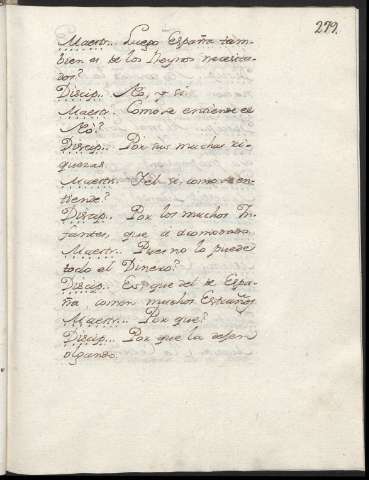 279.
Maestr.. Luego España tam-
bien es de los Reynos necesita-
dos?
Discip.. No, y si.
Maestr. Como se entiende el
No?
Discip... Por sus muchas ri-
quezas.
Maestr.. Y el si, como se en-
tiende?
Discip.. Por los muchos In-
fantes, que à
Maestr... Pues no lo puede
todo el Dinero?
Discip.. Es que del de Espa-
ña, comen muchos Estraños
Maestr... Por què?
Discip... Por que la defien